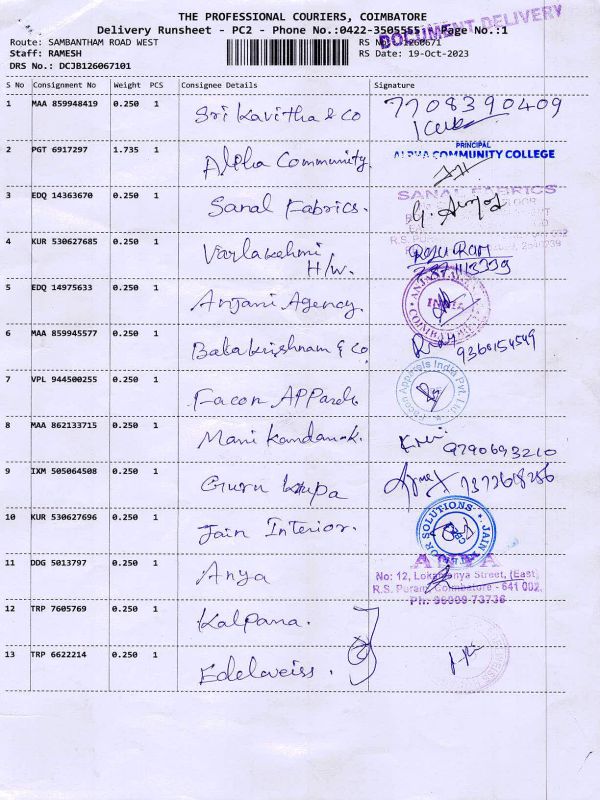 THE PROFESSIONAL COURIERS, COIMBATORE
Delivery Runsheet - PC2 - Phone No.:0422-3505555; Page No.:1
DOCUMENT DELIVERY
Route: SAMBANTHAM ROAD WEST RS No: 1260671
Staff: RAMESH RS Date: 19-Oct-2023
DRS No.: DCJB126067101
S No Consignment No Weight PCS Consignee Details Signature
1 MAA 859948419 0.250 1 Sri Kavitha & Co 7708390409
2 PGT 6917297 1.735 1 Alpha Community.
PRINCIPAL
ALPHA COMMUNITY COLLEGE
3 EDQ 14363670 0.250 1 Sanal Fabrics.
SANAL FABRICS
4 KUR 530627685 0.250 1 Varlakshmi
H/W.
5 EDQ 14975633 0.250 1 Anjani Agency.
6 MAA 859945577 0.250 1 Balakrishnam & Co
9360154549
7 VPL 944500255 0.250 1 Facon APParels
Facon Apparels India Pvt. Ltd.
8 MAA 862133715 0.250 1 Mani Kandan.K.
9790693210
9 IXM 505064508 0.250 1 Guru Krupa
10 KUR 530627696 0.250 1 Jain Interior.
SOLUTIONS JAIN
11 DDG 5013797 0.250 1 Anya
ANYA
No: 12, Lokamanya Street, (East)
R.S. Puram, Coimbatore - 641 002.
Ph: 96009-73736
12 TRP 7605769 0.250 1 Kalpana.
13 TRP 6622214 0.250 1 Edelweiss.